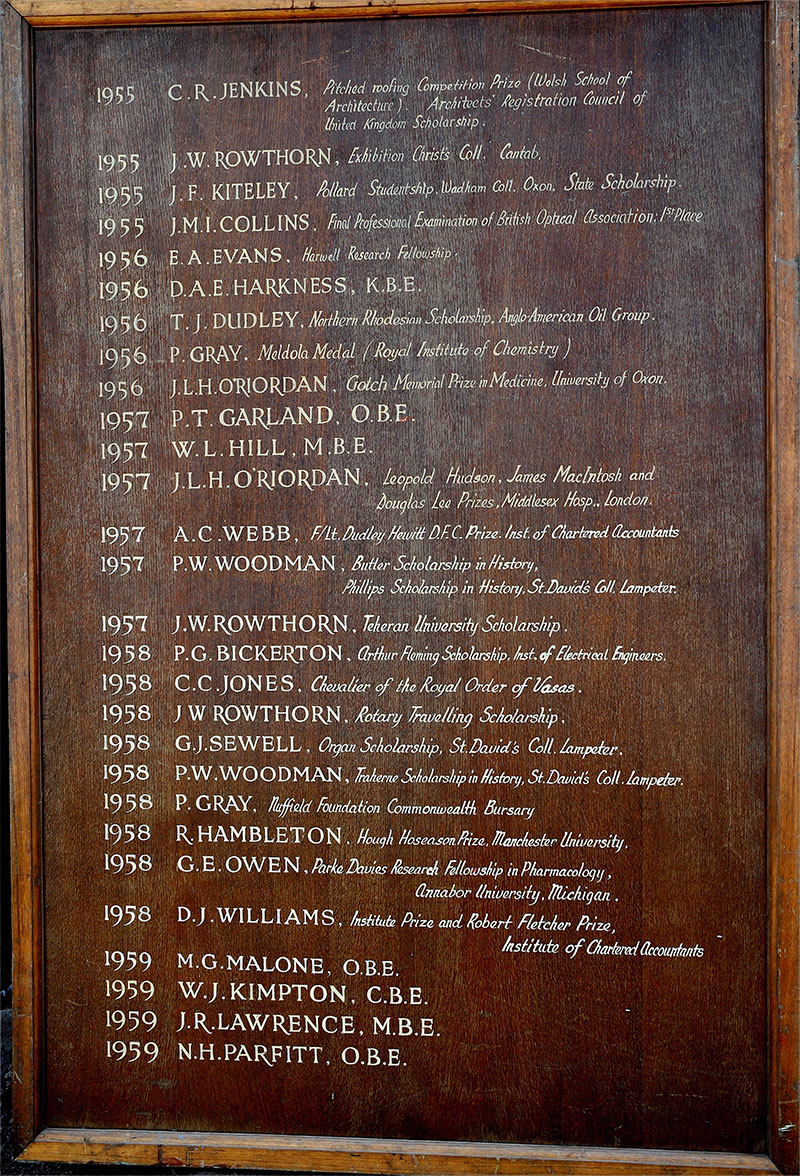 1955 C.R. JENKINS, Pitched roofing Competition Prize (Welsh School of
Architecture). Architects' Registration Council of
United Kingdom Scholarship.
1955 J.W. ROWTHORN, Exhibition Christ's Coll. Cantab.
1955 J.F. KITELEY, Pollard Studentship, Wadham Coll. Oxon, State Scholarship.
1955 J.M.I. COLLINS, Final Professional Examination of British Optical Association: 1st Place
1956 E.A. EVANS, Harwell Research Fellowship.
1956 D.A.E. HARKNESS, K.B.E.
1956 T.J. DUDLEY, Northern Rhodesian Scholarship, Anglo-American Oil Group.
1956 P. GRAY, Meldola Medal (Royal Institute of Chemistry)
1956 J.L.H. O'RIORDAN, Gotch Memorial Prize in Medicine, University of Oxon.
1957 P.T. GARLAND, O.B.E.
1957 W.L. HILL, M.B.E.
1957 J.L.H. O'RIORDAN, Leopold Hudson, James MacIntosh and
Douglas Lee Prizes, Middlesex Hosp., London.
1957 A.C. WEBB, F/Lt. Dudley Hewitt D.F.C. Prize. Inst. of Chartered Accountants
1957 P.W. WOODMAN, Butler Scholarship in History,
Phillips Scholarship in History, St. David's Coll. Lampeter.
1957 J.W. ROWTHORN, Teheran University Scholarship.
1958 P.G. BICKERTON, Arthur Fleming Scholarship, Inst. of Electrical Engineers.
1958 C.C. JONES, Chevalier of the Royal Order of Vasas.
1958 J W ROWTHORN, Rotary Travelling Scholarship.
1958 G.J. SEWELL, Organ Scholarship, St. David's Coll. Lampeter.
1958 P.W. WOODMAN, Traherne Scholarship in History, St. David's Coll. Lampeter.
1958 P. GRAY, Nuffield Foundation Commonwealth Bursary
1958 R. HAMBLETON, Hough Hoseason Prize, Manchester University.
1958 G.E. OWEN, Parke Davies Research Fellowship in Pharmacology,
Annabor University, Michigan.
1958 D.J. WILLIAMS, Institute Prize and Robert Fletcher Prize,
Institute of Chartered Accountants
1959 M.G. MALONE, O.B.E.
1959 W.J. KIMPTON, C.B.E.
1959 J.R. LAWRENCE, M.B.E.
1959 N.H. PARFITT, O.B.E.